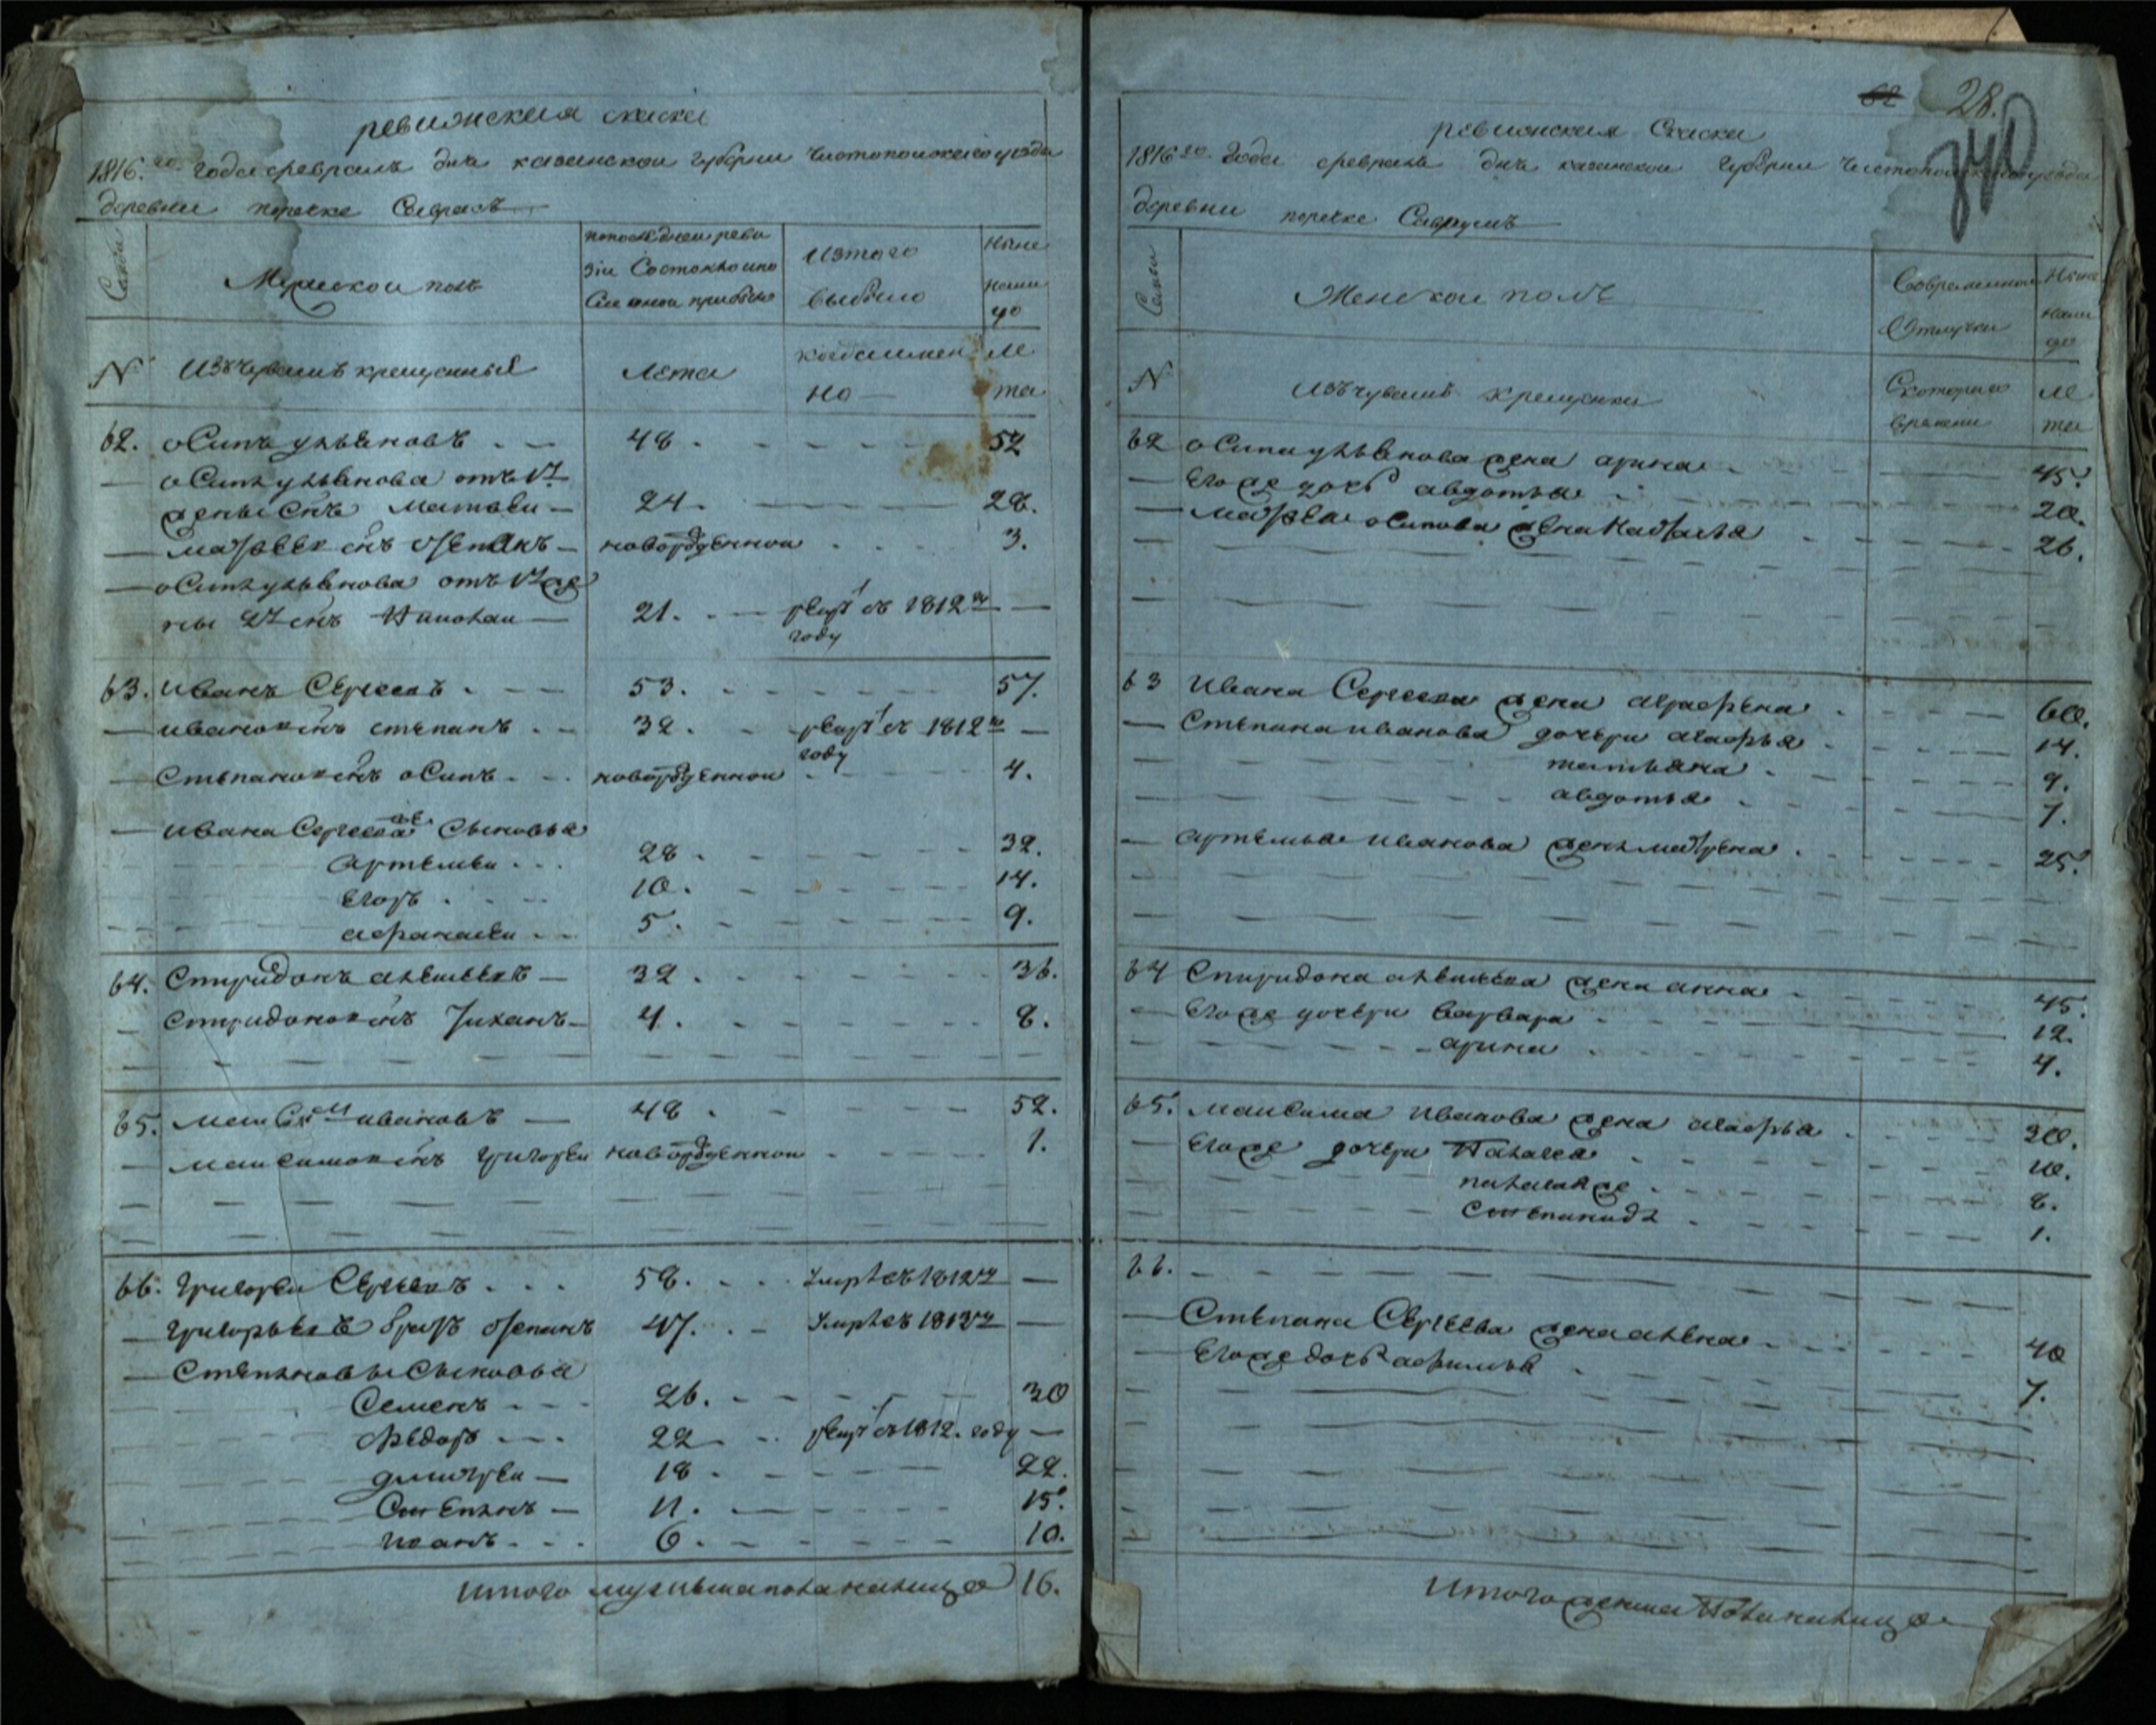 ревизская сказка
1816.го года февраль дня казанской губернии чистопольского уезда
деревни поречке Саврасъ
Семьи
Мужескои полъ
попоследнеи реви
зiи Состояло ипо
Сле онои прибыло
Изтого
выбыло
Ныне
нали
цо
N
Изъчувашъ крещенныя
Лета
когдаимен
но
ле
та
62. оСипъ ульяновъ 48. 52
оСипа ульянова отъ 1й
жены Снъ матвеи 24. 28.
матвеевъ снъ степанъ новорожденнои 3.
оСипа ульянова отъ 1й же
ны 2й снъ Николаи 21. рекрут въ 1812м
году
63. иванъ Сергеевъ 53. 57.
ивановъ снъ степанъ 32. рекрут въ 1812м
году
Степановъ снъ оСипъ новорожденнои 4.
ивана Сергеева Сыновья
артемеи 28. 32.
егоръ 10. 14.
афанасеи 5. 9.
64. Спиридонъ алексеевъ 32. 36.
Спиридоновъ снъ Тиханъ 4. 8.
65. макСим ивановъ 48. 52.
максимовъ снъ григореи новорожденнои 1.
66. григореи Сергеевъ 58. умре въ 1812м
григорьевъ братъ степанъ 47. умре въ 1813м
Степановы Сыновья
Семенъ 26. 30
федоръ 22 рекрут въ 1812. году
дмитреи 18. 22.
Степанъ 11. 15.
иванъ 6. 10.
итого мужеска пола налицо 16.
62 28.
340
ревизская Сказка
1816го года февраль дня казанскои губернии чистопольского уезда
деревни поречке Саврушъ
Семьи
Женскои полъ
Современнои
Отлучки
Ныне
нали
цо
N
Изъчувашъ крещенки
Скотораго
времени
ле
та
62 оСипа ульянова жена арина 45.
Егоже дочь авдотья 20.
матвея оСипова жена Настасья 26.
63 Ивана Сергеева жена аграфена 60.
Степана иванова дочери агафья 14.
татьяна 9.
авдотья 7.
артемья иванова жена матрена 25.
64 Спиридона алексеева жена анна 45.
Егоже дочери варвара 12.
арина 4.
65. максима Иванова жена агафья 30.
Егоже дочери Палагея 10.
палагея же 8.
Степанида 1.
66.
Степана Сергеева жена алена 40
Егоже дочь афимья 7.
Итого женска Пола налицо